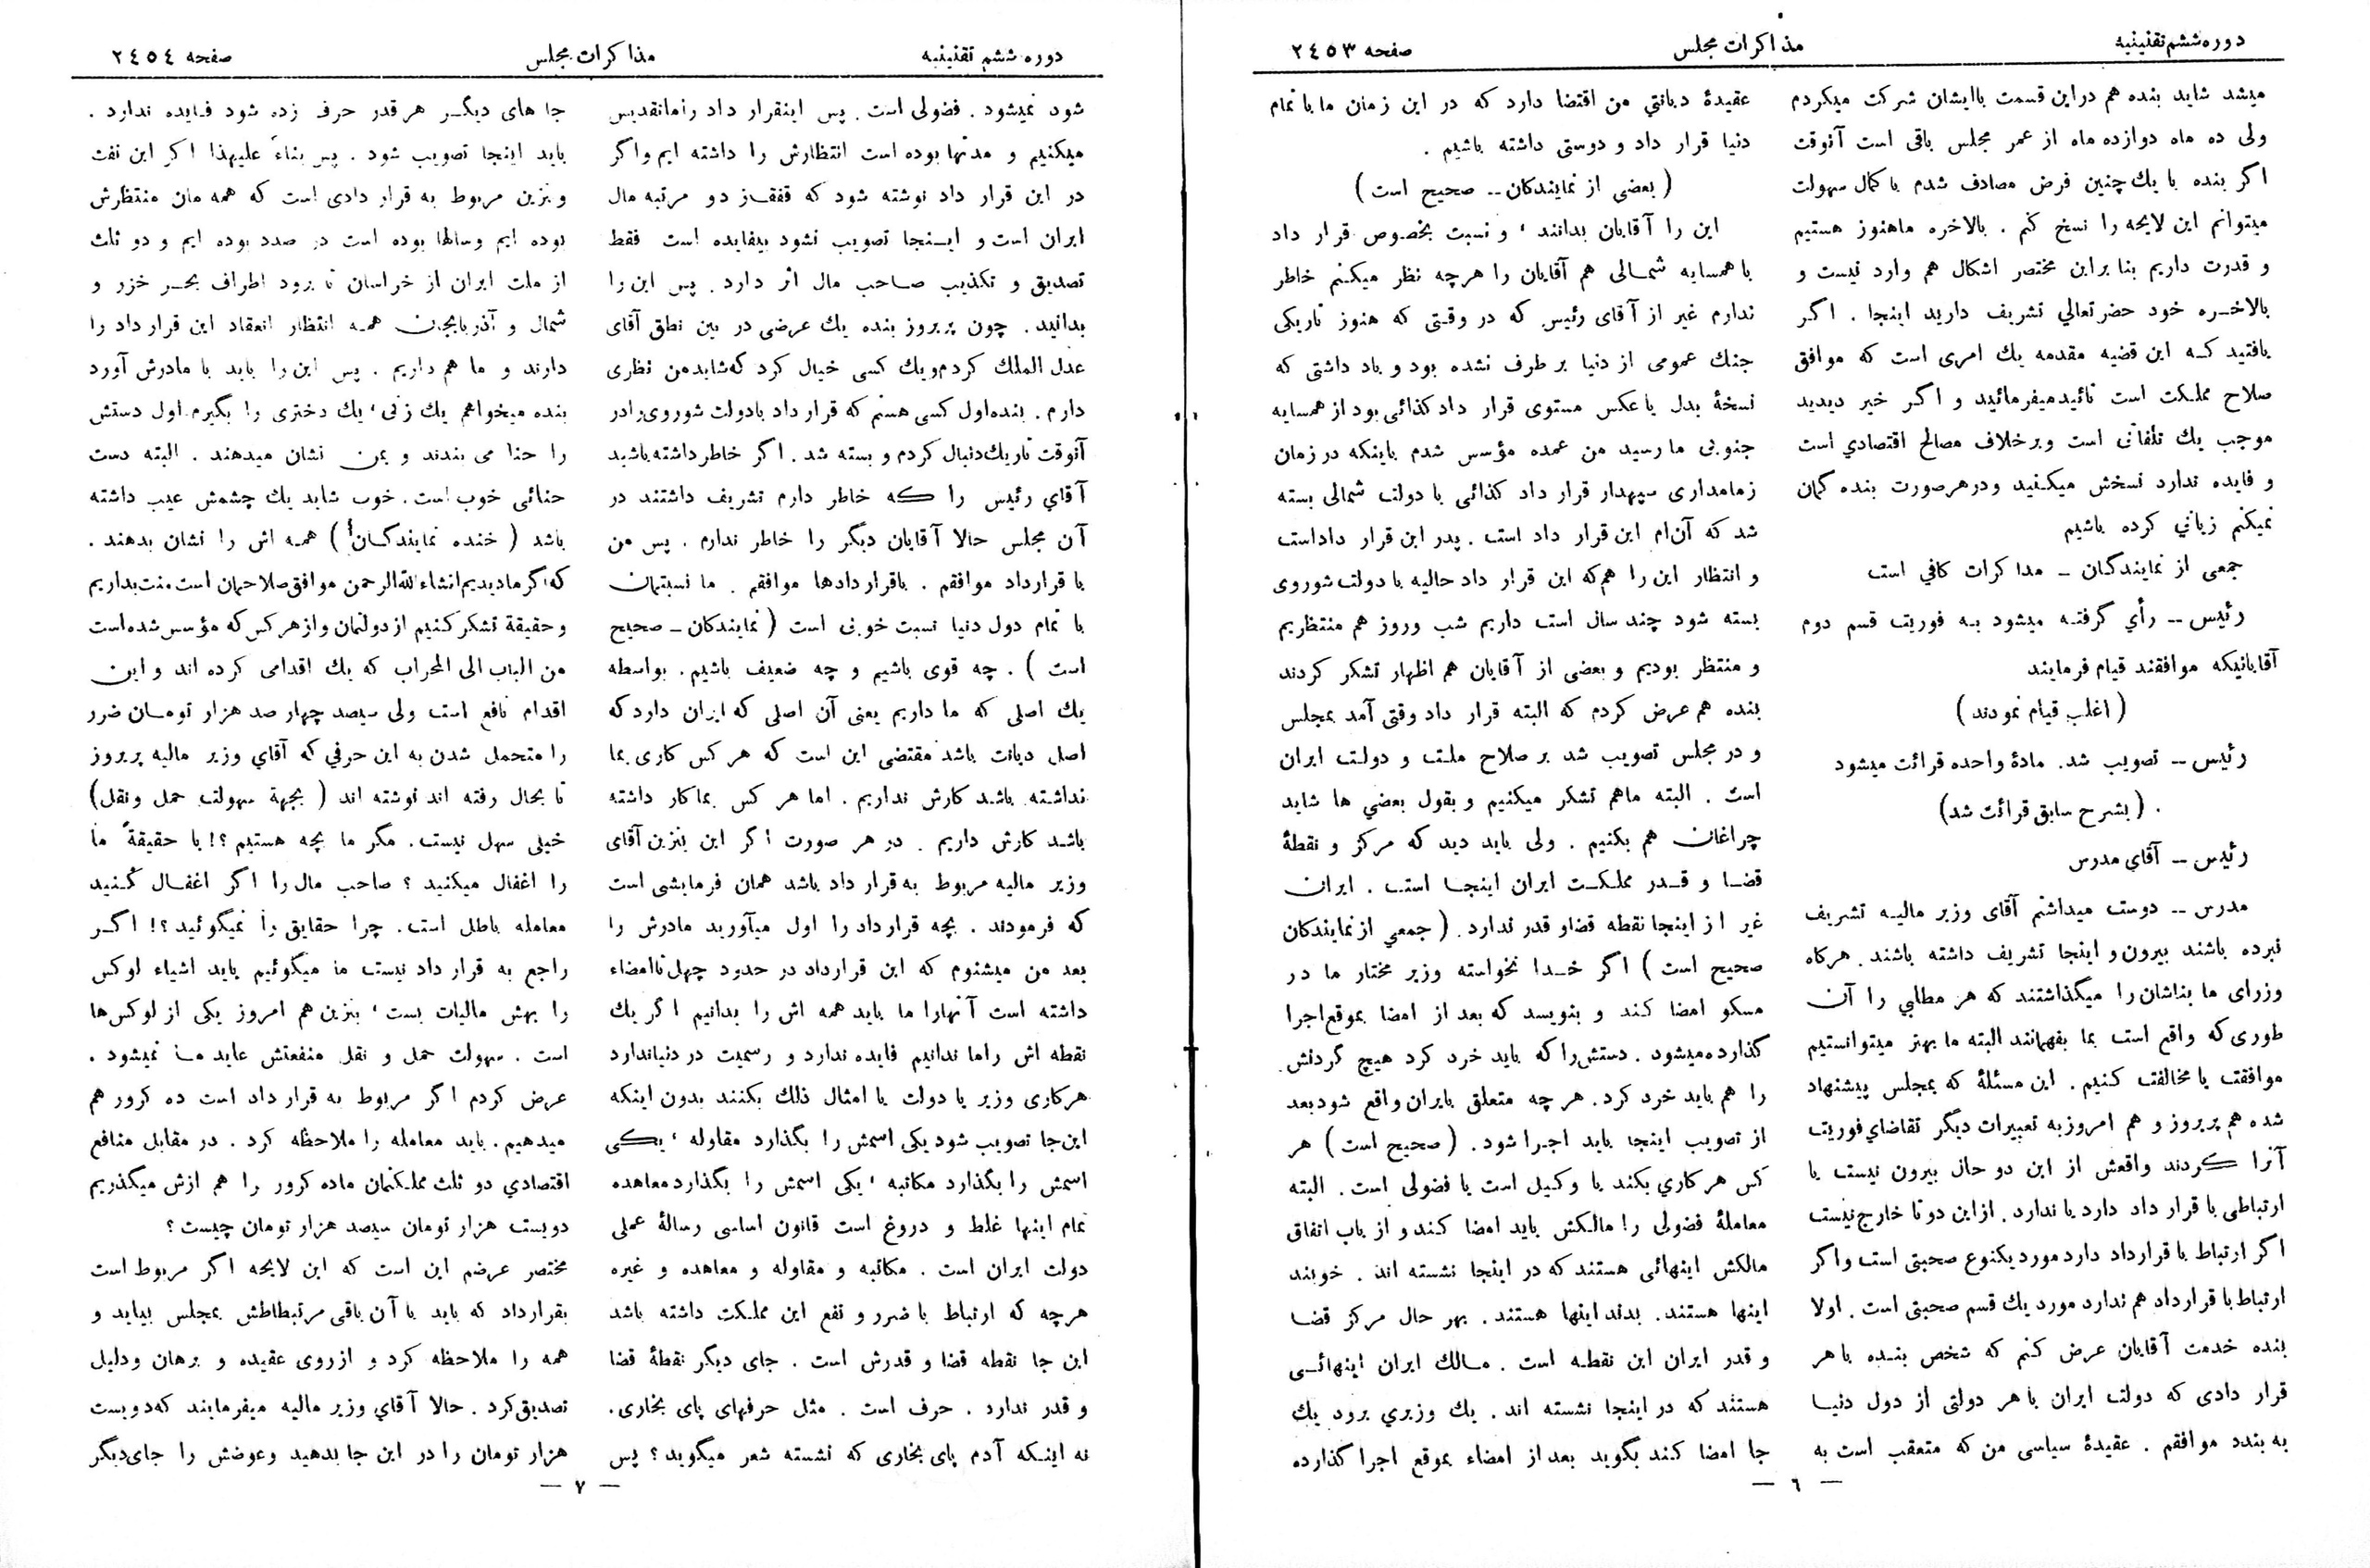 دوره ششم تقنینیه
مذاکرات مجلس
صفحه ٢٤٥٣
میشد شاید بنده هم دراین قسمت باایشان شرکت میکردم
ولی ده ماه دوازده ماه از عمر مجلس باقی است آنوقت
اگر بنده با یك چنین فرض مصادف شدم با کمال سهولت
میتوانم این لایحه را نسخ کنم . بالاخره ماهنوز هستیم
و قدرت داریم بنا براین مختصر اشکال هم وارد نیست و
بالاخره خود حضرتعالي تشریف دارید اینجا . اگر
یافتید که این قضیه مقدمه یك امری است که موافق
صلاح مملکت است تائید میفرمائید و اگر خیر دیدید
موجب یك تلفاتی است و برخلاف مصالح اقتصادي است
و فایده ندارد نسخش میکنید ودرهرصورت بنده گمان
نمیکنم زیاني کرده باشیم
جمعی از نمایندگان ـ مذاکرات کافي است
رئیس ــ رأي گرفته میشود به فوریت قسم دوم
آقایانیکه موافقند قیام فرمایند
( اغلب قیام نمودند )
رئیس ــ تصویب شد. مادۀ واحده قرائت میشود
. ( بشرح سابق قرائت شد)
رئیس ــ آقاي مدرس
مدرس ــ دوست میداشتم آقای وزیر مالیه تشریف
نبرده باشند بیرون و اینجا تشریف داشته باشند. هرگاه
وزرای ما بناشان را میگذاشتند که هر مطلبي را آن
طوری که واقع است بما بفهمانند البته ما بهتر میتوانستیم
موافقت یا مخالفت کنیم. این مسئلۀ که بمجلس پیشنهاد
شده هم پریروز و هم امروز به تعبیرات دیگر تقاضاي فوریت
آنرا کردند واقعش از این دو حال بیرون نیست یا
ارتباطی با قرار داد دارد یا ندارد. ازاین دو تا خارج نیست
اگر ارتباط با قرارداد دارد مورد یکنوع صحبتی است و اگر
ارتباط با قرارداد هم ندارد مورد یك قسم صحبتی است. اولا
بنده خدمت آقایان عرض کنم که شخص بنده با هر
قرار دادی که دولت ایران با هر دولتی از دول دنیا
به بندد موافقم . عقیدۀ سیاسی من که متعقب است به
عقیدۀ دیانتي من اقتضا دارد که در این زمان ما با تمام
دنیا قرار داد و دوستی داشته باشیم .
( بعضی از نمایندگان ــ صحیح است )
این را آقایان بدانند ، و نسبت بخصوص قرار داد
با همسایه شمالی هم آقایان را هرچه نظر میکنم خاطر
ندارم غیر از آقای رئیس که در وقتی که هنوز تاریکی
جنك عمومی از دنیا بر طرف نشده بود و یاد داشتی که
نسخۀ بدل یا عکس مستوی قرار داد کذائی بود از همسایه
جنوبی ما رسید من عمده مؤسس شدم باینکه در زمان
زمامداری سپهدار قرار داد کذائی با دولت شمالی بسته
شد که آن ام این قرار داد است . پدر این قرار داداست
و انتظار این را هم که این قرار داد حالیه با دولت شوروی
بسته شود چند سال است داریم شب وروز هم منتظریم
و منتظر بودیم و بعضی از آقایان هم اظهار تشکر کردند
بنده هم عرض کردم که البته قرار داد وقتی آمد بمجلس
و در مجلس تصویب شد بر صلاح ملت و دولت ایران
است . البته ماهم تشکر میکنیم و بقول بعضي ها شاید
چراغان هم بکنیم . ولی باید دید که مرکز و نقطۀ
قضا و قدر مملکت ایران اینجا است . ایران
غیر از اینجا نقطه قضاو قدر ندارد. ( جمعي از نمایندگان
صحیح است ) اگر خدا نخواسته وزیر مختار ما در
مسکو امضا کند و بنویسد که بعد از امضا بموقع اجرا
گذارده میشود . دستش را که باید خرد کرد هیچ گردنش
را هم باید خرد کرد. هر چه متعلق بایران واقع شود بعد
از تصویب اینجا باید اجرا شود. ( صحیح است ) هر
کس هر کاري بکند یا وکیل است یا فضولی است . البته
معاملۀ فضولی را مالکش باید امضا کند و از باب اتفاق
مالکش اینهائی هستند که در اینجا نشسته اند . خوبند
اینها هستند. بدند اینها هستند. بهر حال مرکز قضا
و قدر ایران این نقطه است . مالك ایران اینهائی
هستند که در اینجا نشسته اند. یك وزیري برود یك
جا امضا کند بگوید بعد از امضاء بموقع اجرا گذارده
— ٦ —
دوره ششم تقنینیه
مذاکرات مجلس
صفحه ٢٤٥٤
شود نمیشود . فضولی است. پس اینقرار داد راماتقدیس
میکنیم و مدتها بوده است انتظارش را داشته ایم واگر
در این قرار داد نوشته شود که قفقاز دو مرتبه مال
ایران است و اینجا تصویب نشود بیفایده است فقط
تصدیق و تکذیب صاحب مال اثر دارد. پس این را
بدانید. چون پریروز بنده یك عرضی در بین نطق آقای
عدل الملك کردم ویك کسی خیال کرد که شاید من نظری
دارم. بنده اول کسی هستم که قرار داد بادولت شوروی رادر
آنوقت تاریك دنبال کردم و بسته شد. اگر خاطر داشته باشید
آقاي رئیس را که خاطر دارم تشریف داشتند در
آن مجلس حالا آقایان دیگر را خاطر ندارم . پس من
با قرارداد موافقم . باقراردادها موافقم . ما نسبتمان
با تمام دول دنیا نسبت خوبی است ( نمایندگان ـ صحیح
است ) . چه قوی باشیم و چه ضعیف باشیم. بواسطه
یك اصلی که ما داریم یعنی آن اصلی که ایران دارد که
اصل دیانت باشد مقتضی این است که هر کس کاری بما
نداشته باشد کارش نداریم . اما هر کس بما کار داشته
باشد کارش داریم . در هر صورت اگر این بنزین آقای
وزیر مالیه مربوط به قرار داد باشد همان فرمایشی است
که فرمودند . بچه قرارداد را اول میآورید مادرش را
بعد من میشنوم که این قرارداد در حدود چهل تاامضاء
داشته است آنهارا ما باید همه اش را بدانیم اگر یك
نقطه اش راما ندانیم فایده ندارد و رسمیت در دنیاندارد
هرکاری وزیر یا دولت یا امثال ذلك بکنند بدون اینکه
این جا تصویب شود یکی اسمش را بگذارد مقاوله ، یکی
اسمش را بگذارد مکاتبه ، یکی اسمش را بگذارد معاهده
تمام اینها غلط و دروغ است قانون اساسی رسالۀ عملی
دولت ایران است . مکاتبه و مقاوله و معاهده و غیره
هرچه که ارتباط با ضرر و نفع این مملکت داشته باشد
این جا نقطه قضا و قدرش است . جای دیگر نقطۀ قضا
و قدر ندارد . حرف است . مثل حرفهای پای بخاری.
نه اینکه آدم پای بخاری که نشسته شعر میگوید؟ پس
جا های دیگر هر قدر حرف زده شود فایده ندارد .
باید اینجا تصویب شود . پس بناءً علیهذا اگر این نفت
و بنزین مربوط به قرار دادی است که همه مان منتظرش
بوده ایم وسالها بوده است در صدد بوده ایم و دو ثلث
از ملت ایران از خراسان تا برود اطراف بحر خزر و
شمال و آذربایجان همه انتظار انعقاد این قرار داد را
دارند و ما هم داریم . پس این را باید با مادرش آورد
بنده میخواهم یك زنی ، یك دختری را بگیرم اول دستش
را حنا می بندند و بمن نشان میدهند . البته دست
حنائی خوب است. خوب شاید یك چشمش عیب داشته
باشد ( خنده نمایندگان ) همه اش را نشان بدهند .
که اگر مادیدیم انشاءالله الرحمن موافق صلاحمان است منت بداریم
وحقیقة تشکر کنیم از دولتمان واز هر کس که مؤسس شده است
من الباب الی المحراب که یك اقدامی کرده اند و این
اقدام نافع است ولی سیصد چهار صد هزار تومان ضرر
را متحمل شدن به این حرفي که آقاي وزیر مالیه پریروز
تا بحال رفته اند نوشته اند ( بجهة سهولت حمل ونقل)
خیلی سهل نیست. مگر ما بچه هستیم ؟! یا حقیقةً ما
را اغفال میکنید ؟ صاحب مال را اگر اغفال کنید
معامله باطل است. چرا حقایق را نمیگوئید؟! اگر
راجع به قرار داد نیست ما میگوئیم باید اشیاء لوکس
را بهش مالیات بست ، بنزین هم امروز یکی از لوکس‌ها
است . سهولت حمل و نقل منفعتش عاید ما نمیشود .
عرض کردم اگر مربوط به قرار داد است ده کرور هم
میدهیم. باید معامله را ملاحظه کرد . در مقابل منافع
اقتصادي دو ثلث مملکتمان ماده کرور را هم ازش میگذریم
دویست هزار تومان سیصد هزار تومان چیست ؟
مختصر عرضم این است که این لایحه اگر مربوط است
بقرارداد که باید با آن باقی مرتبطاطش بمجلس بیاید و
همه را ملاحظه کرد و ازروی عقیده و برهان ودلیل
تصدیق کرد . حالا آقاي وزیر مالیه میفرمایند که دویست
هزار تومان را در این جا بدهید وعوضش را جای دیگر
— ٧ —